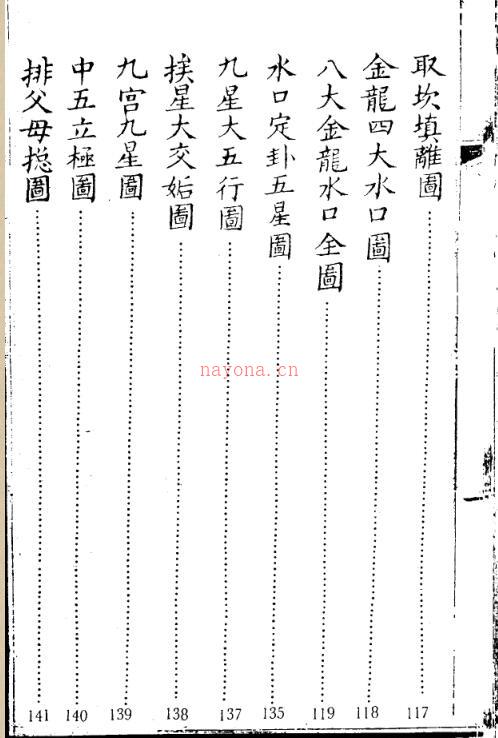 取坎填離圖 117
金龍四大水口圖 118
八大金龍水口全圖 119
水口定卦五星圖 135
九星大五行圖 137
挨星大交姤圖 138
九宮九星圖 139
中五立極圖 140
排父母捴圖 141
nayona.cn